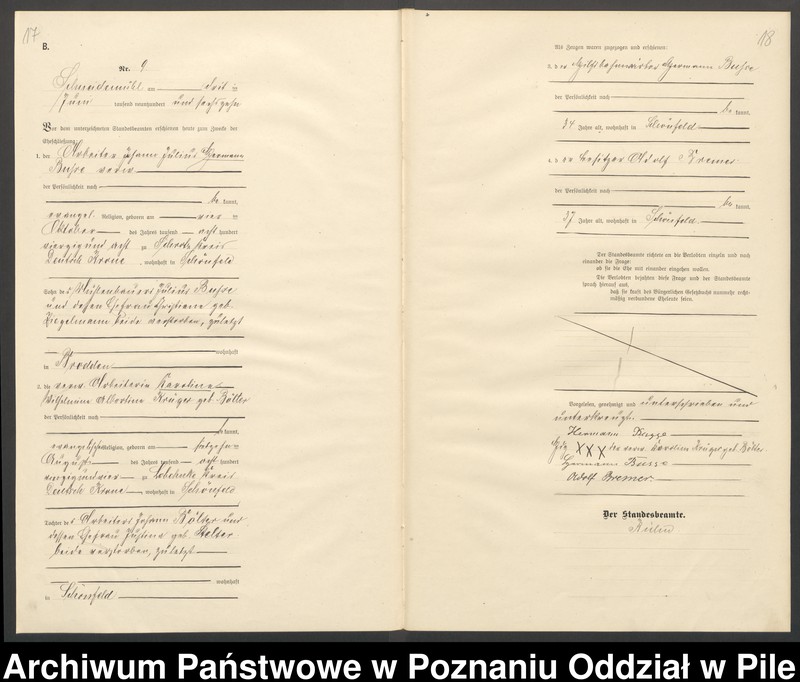 17
B.
Nr. 9.
Schneidemühl am drit
Juni tausend neunhundert und sechzehn
Vor dem unterzeichneten Standesbeamten erschienen heute zum Zwecke der
Eheschließung:
1. der Arbeiter Johann Julius Hermann
Busse
der Persönlichkeit nach
be kannt,
evangel. Religion, geboren am vier
Oktober des Jahres tausend acht hundert
vierzig und acht zu Kreis
Deutsch Krone, wohnhaft in Schönfeld
Sohn des Julius Busse
und dessen Ehefrau Christiane geb.
Ziegelmann beide verstorben, zuletzt
wohnhaft
in Brodden
2. die verw. Arbeiterin Karoline
Wilhelmine Krüger geb. Bölter
der Persönlichkeit nach
be kannt,
evangelischer Religion, geboren am
August des Jahres tausend acht hundert
zu Lebehnke Kreis
Deutsch Krone, wohnhaft in Schönfeld
Tochter des Arbeiters Johann Bölter und
dessen Ehefrau Justine geb.
beide verstorben, zuletzt
wohnhaft
in Schönfeld
18
Als Zeugen waren zugezogen und erschienen:
3. der Hermann Busse
der Persönlichkeit nach
be kannt,
34 Jahre alt, wohnhaft in Schönfeld
4. der Besitzer Adolf Bremer
der Persönlichkeit nach
be kannt,
37 Jahre alt, wohnhaft in Schönfeld
Der Standesbeamte richtete an die Verlobten einzeln und nach
einander die Frage:
ob sie die Ehe mit einander eingehen wollen.
Die Verlobten bejahten diese Frage und der Standesbeamte
sprach hierauf aus,
daß sie kraft des Bürgerlichen Gesetzbuchs nunmehr recht-
mäßig verbundene Eheleute seien.
Vorgelesen, genehmigt und unterschrieben und
unterkreuzt.
Hermann Busse
XXX der verw. Karoline Krüger geb. Bölter
Hermann Busse
Adolf Bremer
Der Standesbeamte.
Archiwum Państwowe w Poznaniu Oddział w Pile